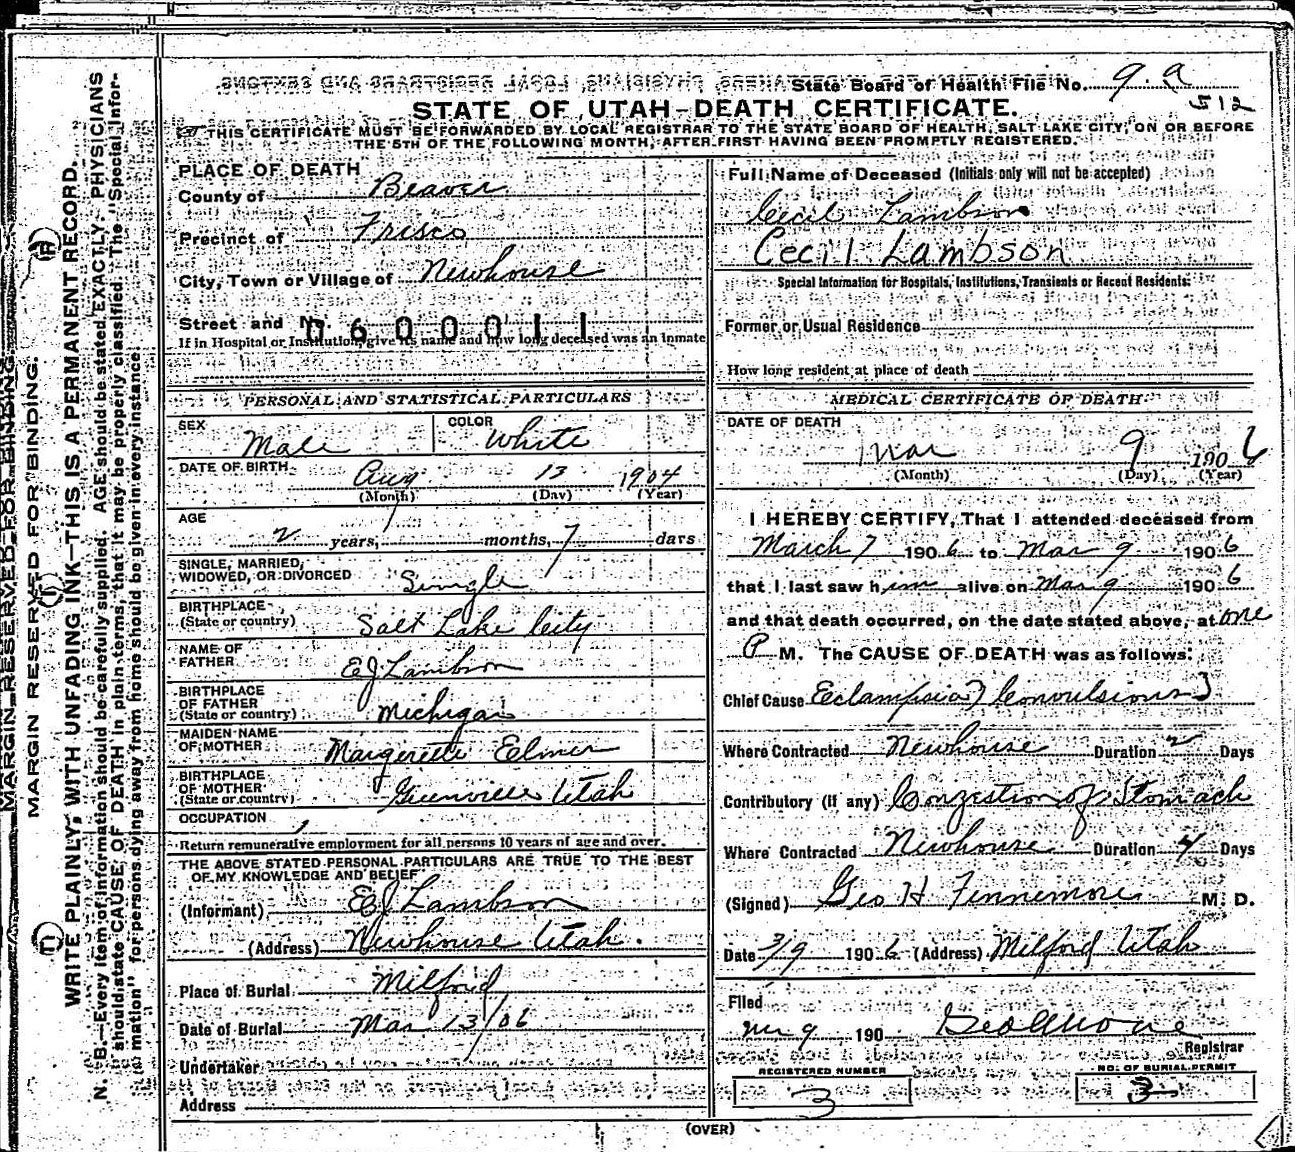 State Board of Health File No. 9.a
512
STATE OF UTAH-DEATH CERTIFICATE.
THIS CERTIFICATE MUST BE FORWARDED BY LOCAL REGISTRAR TO THE STATE BOARD OF HEALTH, SALT LAKE CITY, ON OR BEFORE
THE 5TH OF THE FOLLOWING MONTH, AFTER FIRST HAVING BEEN PROMPTLY REGISTERED.
PLACE OF DEATH
County of Beaver
Precinct of Frisco
City, Town or Village of Newhouse
Street and No.
0600011
If in Hospital or Institution, give its name and how long deceased was an Inmate
PERSONAL AND STATISTICAL PARTICULARS
SEX Male COLOR White
DATE OF BIRTH Aug 13 1904
(Month) (Day) (Year)
AGE
2 years, months, 7 days
SINGLE, MARRIED,
WIDOWED, OR DIVORCED Single
BIRTHPLACE
(State or country) Salt Lake City
NAME OF
FATHER EJ Lambson
BIRTHPLACE
OF FATHER
(State or country) Michigan
MAIDEN NAME
OF MOTHER Margerette Elmer
BIRTHPLACE
OF MOTHER
(State or country) Greenville Utah
OCCUPATION
Return remunerative employment for all persons 10 years of age and over.
THE ABOVE STATED PERSONAL PARTICULARS ARE TRUE TO THE BEST
OF MY KNOWLEDGE AND BELIEF
(Informant) EJ Lambson
(Address) Newhouse Utah.
Place of Burial Milford
Date of Burial Mar 13/06
Undertaker
Address
Full Name of Deceased (Initials only will not be accepted)
Cecil Lambson
Cecil Lambson
Special Information for Hospitals, Institutions, Transients or Recent Residents:
Former or Usual Residence
How long resident at place of death
MEDICAL CERTIFICATE OF DEATH
DATE OF DEATH
Mar 9 1906
(Month) (Day) (Year)
I HEREBY CERTIFY, That I attended deceased from
March 7 1906 to Mar 9 1906
that I last saw him alive on Mar 9 1906
and that death occurred, on the date stated above, at one
P M. The CAUSE OF DEATH was as follows:
Chief Cause Eclampsia) Convulsions)
Where Contracted Newhouse Duration 2 Days
Contributory (If any) Congestion of Stomach
Where Contracted Newhouse Duration Days
(Signed) Geo H Fennemore M. D.
Date 3/9 1906 (Address) Milford Utah
Filed
9 190
Registrar
REGISTERED NUMBER
3
NO. OF BURIAL PERMIT
3
(OVER)
MARGIN RESERVED FOR BINDING.
MARGIN RESERVED FOR BINDING.
WRITE PLAINLY, WITH UNFADING INK—THIS IS A PERMANENT RECORD.
N. B.—Every item of information should be carefully supplied. AGE should be stated EXACTLY. PHYSICIANS
should state CAUSE OF DEATH in plain terms, that it may be properly classified. The "Special Infor-
mation" for persons dying away from home should be given in every instance.